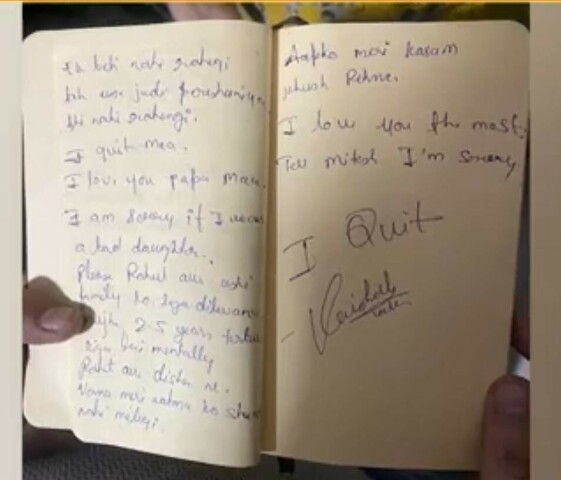 nahi rahegi
pareshaniya
bhi nahi rahengi.
I quit maa.
I love you papa maa.
I am sorry if I was
a bad daughter.
Please Rahul aur
family ko saja dilwana
mujhe 2.5 years torture
kiya hai mentally
Rahul aur disha ne.
Varna meri aatma ko
nahi milegi.
Aapko meri kasam
khush Rehna.
I love you the most.
Tell mitesh I'm sorry
I Quit